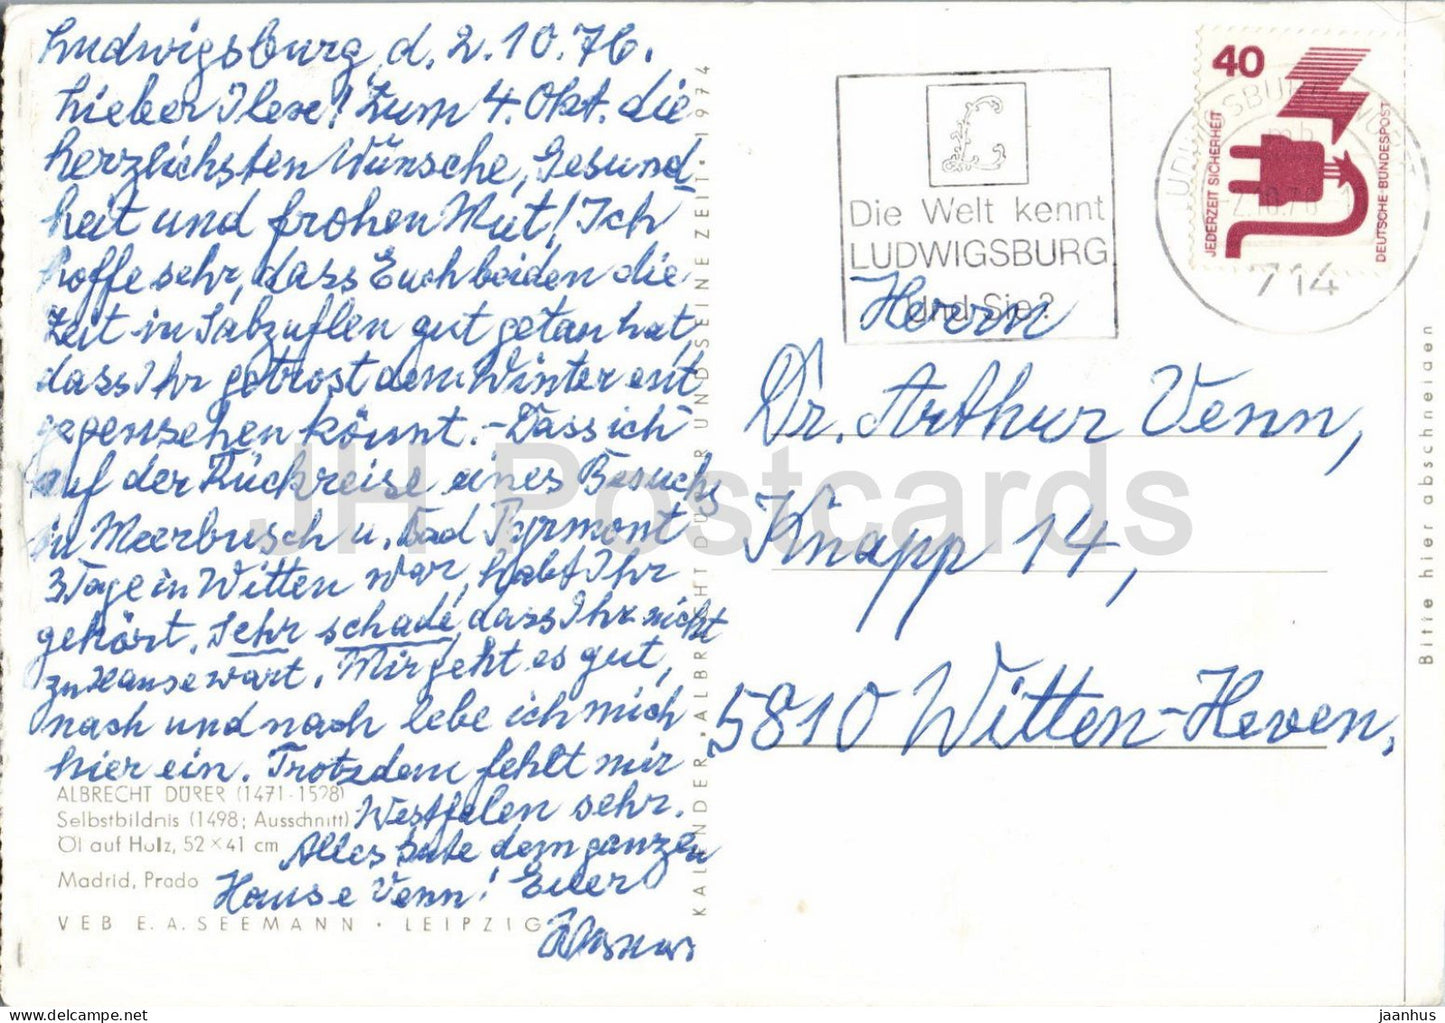 Ludwigsburg, d. 2.10.76.
Lieber Ilex! Zum 4. Okt. die
herzlichsten Wünsche, Gesund
heit und frohen Mut! Ich
hoffe sehr, dass Euch beiden die
Zeit in Salzuflen gut getan hat,
dass Ihr getrost dem Winter ent
gegensehen könnt. - Dass ich
auf der Rückreise eines Besuchs
in Meerbusch u. Bad Pyrmont
3 Tage in Witten war, habt Ihr
gehört. Sehr schade, dass Ihr nicht
zu Hause wart. Mir geht es gut,
nach und nach lebe ich mich
hier ein. Trotzdem fehlt mir
Westfalen sehr.
Alles Gute dem ganzen
Hause Venn! Euer
ALBRECHT DÜRER (1471-1528)
Selbstbildnis (1498; Ausschnitt)
Öl auf Holz, 52 × 41 cm
Madrid, Prado
VEB E. A. SEEMANN · LEIPZIG
KALENDER · ALBRECHT DÜRER UND SEINE ZEIT · 1974
L
Die Welt kennt
LUDWIGSBURG
und Sie?
40
JEDERZEIT SICHERHEIT
DEUTSCHE BUNDESPOST
LUDWIGSBURG
mb
-2.10.76
714
Herrn
Dr. Arthur Venn,
Knapp 14,
5810 Witten-Heven,
Bitte hier abschneiden
JH Postcards
https://www.hippostcard.com/store/jh-postcards
jaanhus